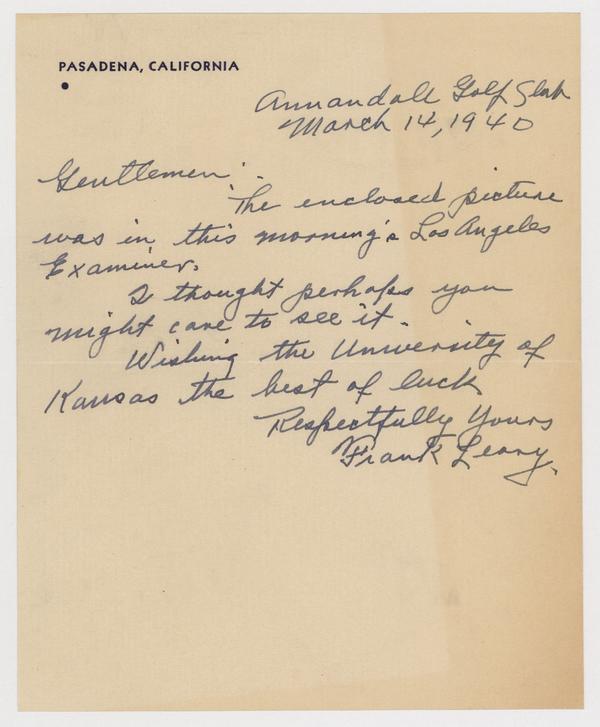 PASADENA, CALIFORNIA
Annandale Golf Club
March 14, 1940
Gentlemen:
The enclosed picture
was in this morning's Los Angeles
Examiner.
I thought perhaps you
might care to see it.
Wishing the University of
Kansas the best of luck
Respectfully Yours
Frank Leary.